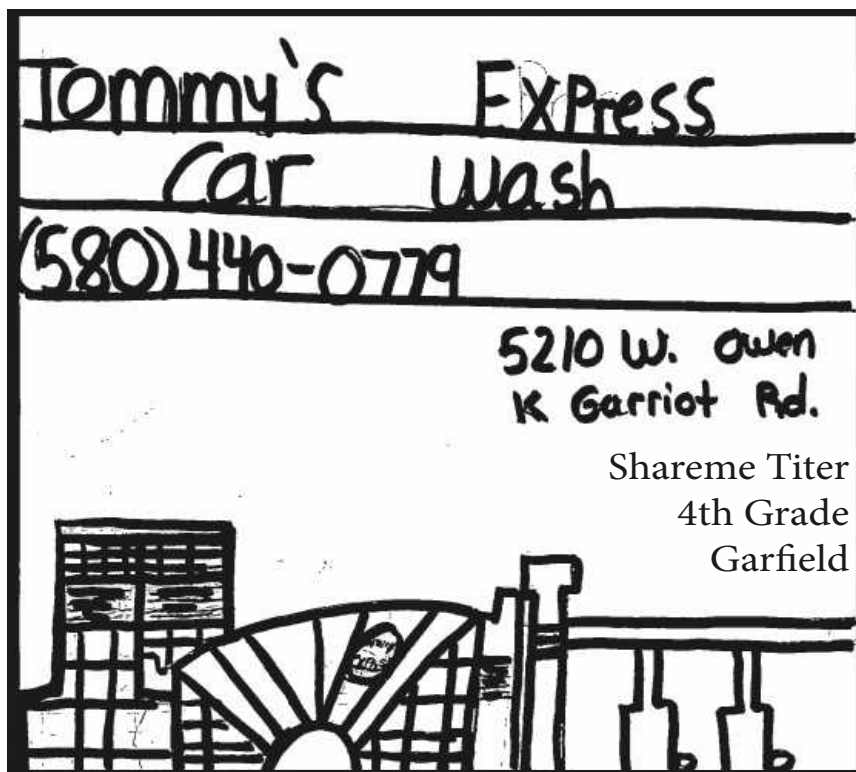 Tommy's Express
Car Wash
(580) 440-0779
5210 W. Owen
K Garriot Rd.
Shareme Titer
4th Grade
Garfield